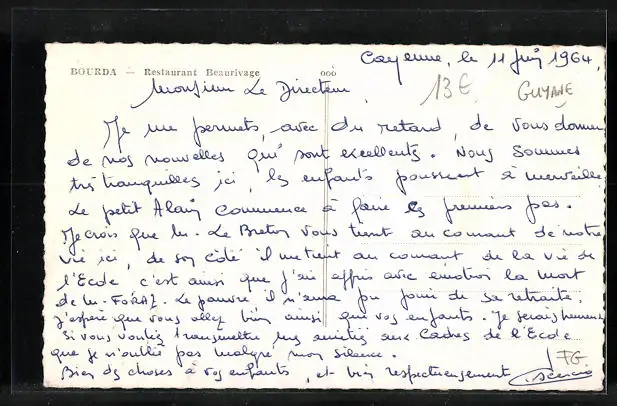 Cayenne, le 11 Juin 1964.
BOURDA — Restaurant Beaurivage
13€
GUYANE
Monsieur Le Directeur,
Je me permets, avec du retard, de vous donner
de nos nouvelles qui sont excellentes. Nous sommes
très tranquilles ici, les enfants poussent à merveille
Le petit Alain commence à faire ses premiers pas.
Je crois que M. Le Breton vous tient au courant de notre
vie ici, de son côté il me tient au courant de la vie de
l'Ecole c'est ainsi que j'ai appris avec émotion la mort
de M. Le pauvre il n'aura pu jouir de sa retraite.
J'espère que vous allez bien ainsi que vos enfants. Je serais heureux
si vous vouliez transmettre mes amitiés aux Cadres de l'Ecole
que je n'oublie pas malgré mon silence.
Bien des choses à vos enfants, et bien respectueusement
FG